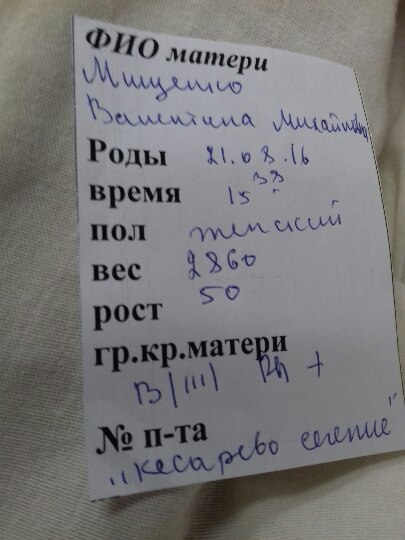 ФИО матери
Мищенко
Валентина Михайловна
Роды 21.08.16
время 15 38
пол женский
вес 2860
рост 50
гр.кр.матери
B(III) Rh +
№ п-та
"кесарево сечение"